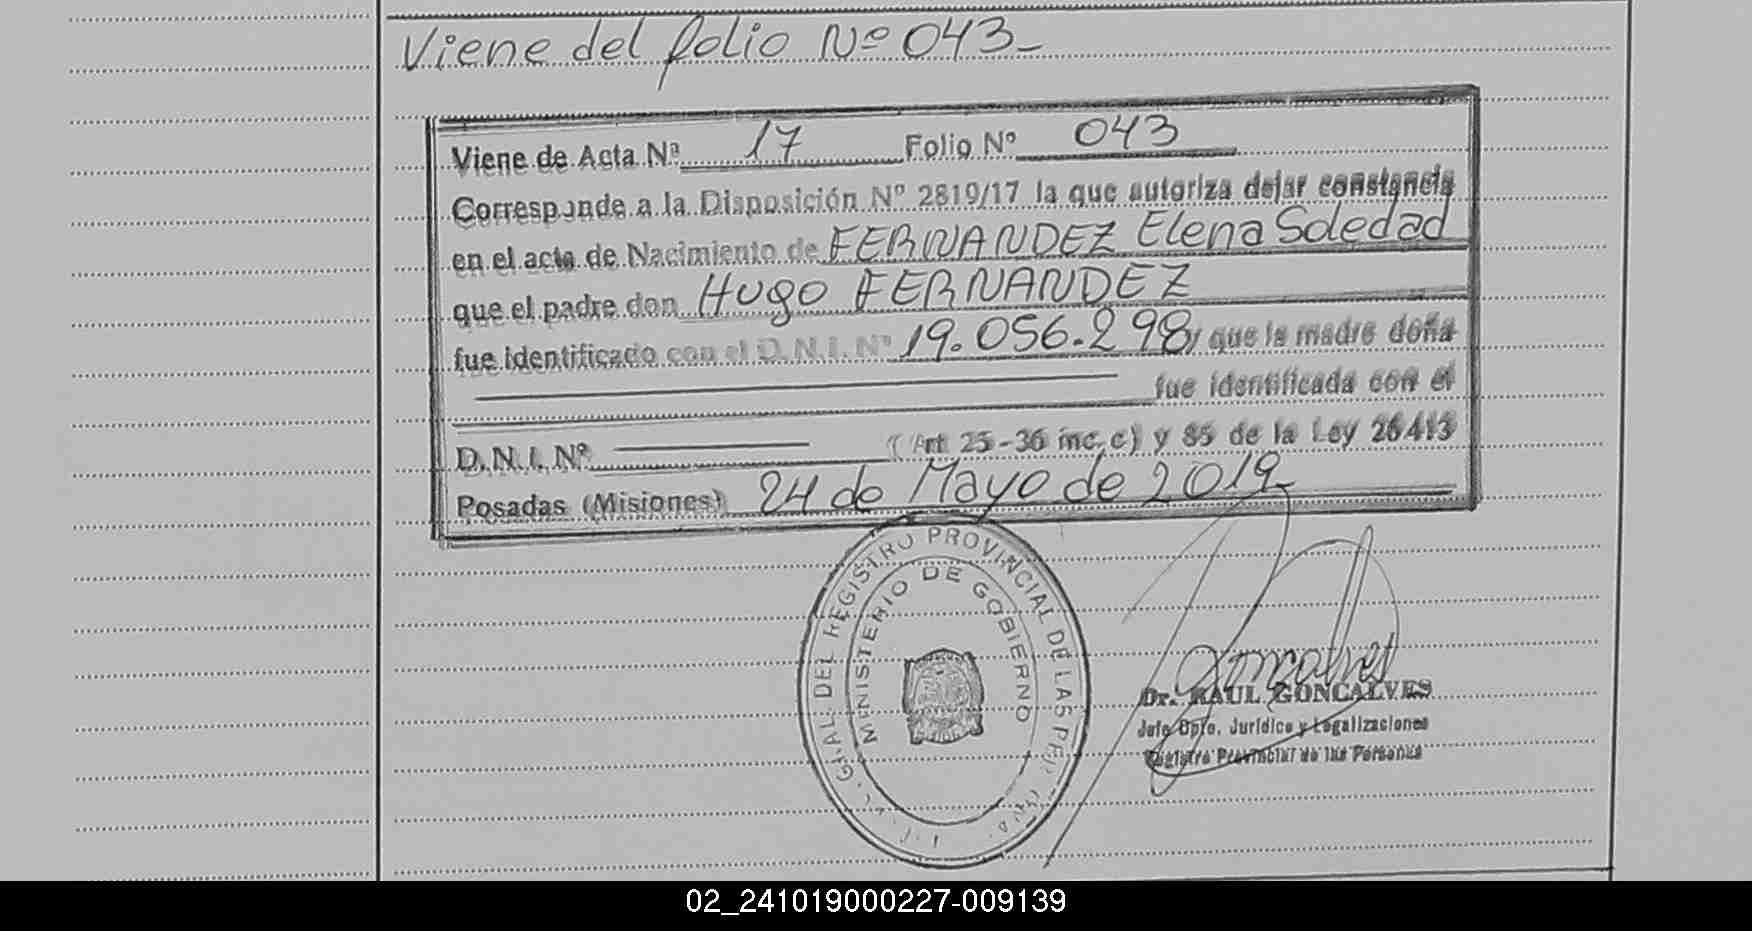 Viene del folio Nº 043-
Viene de Acta Nª 17 Folio Nº 043
Corresponde a la Disposición Nº 2819/17 la que autoriza dejar constancia
en el acta de Nacimiento de FERNANDEZ Elena Soledad
que el padre don Hugo FERNANDEZ
fue identificado con el D.N.I. Nº 19.056.298 y que la madre doña
fue identificada con el
D.N.I. Nº (Art 25-36 inc. c) y 85 de la Ley 26413
Posadas (Misiones) 24 de Mayo de 2019-
GRAL. DEL REGISTRO PROVINCIAL DE LAS
MINISTERIO DE GOBIERNO
Goncalves
Dr. RAUL GONCALVES
Jefe Dpto. Jurídico y Legalizaciones
Registro Provincial de las Personas
02_241019000227-009139